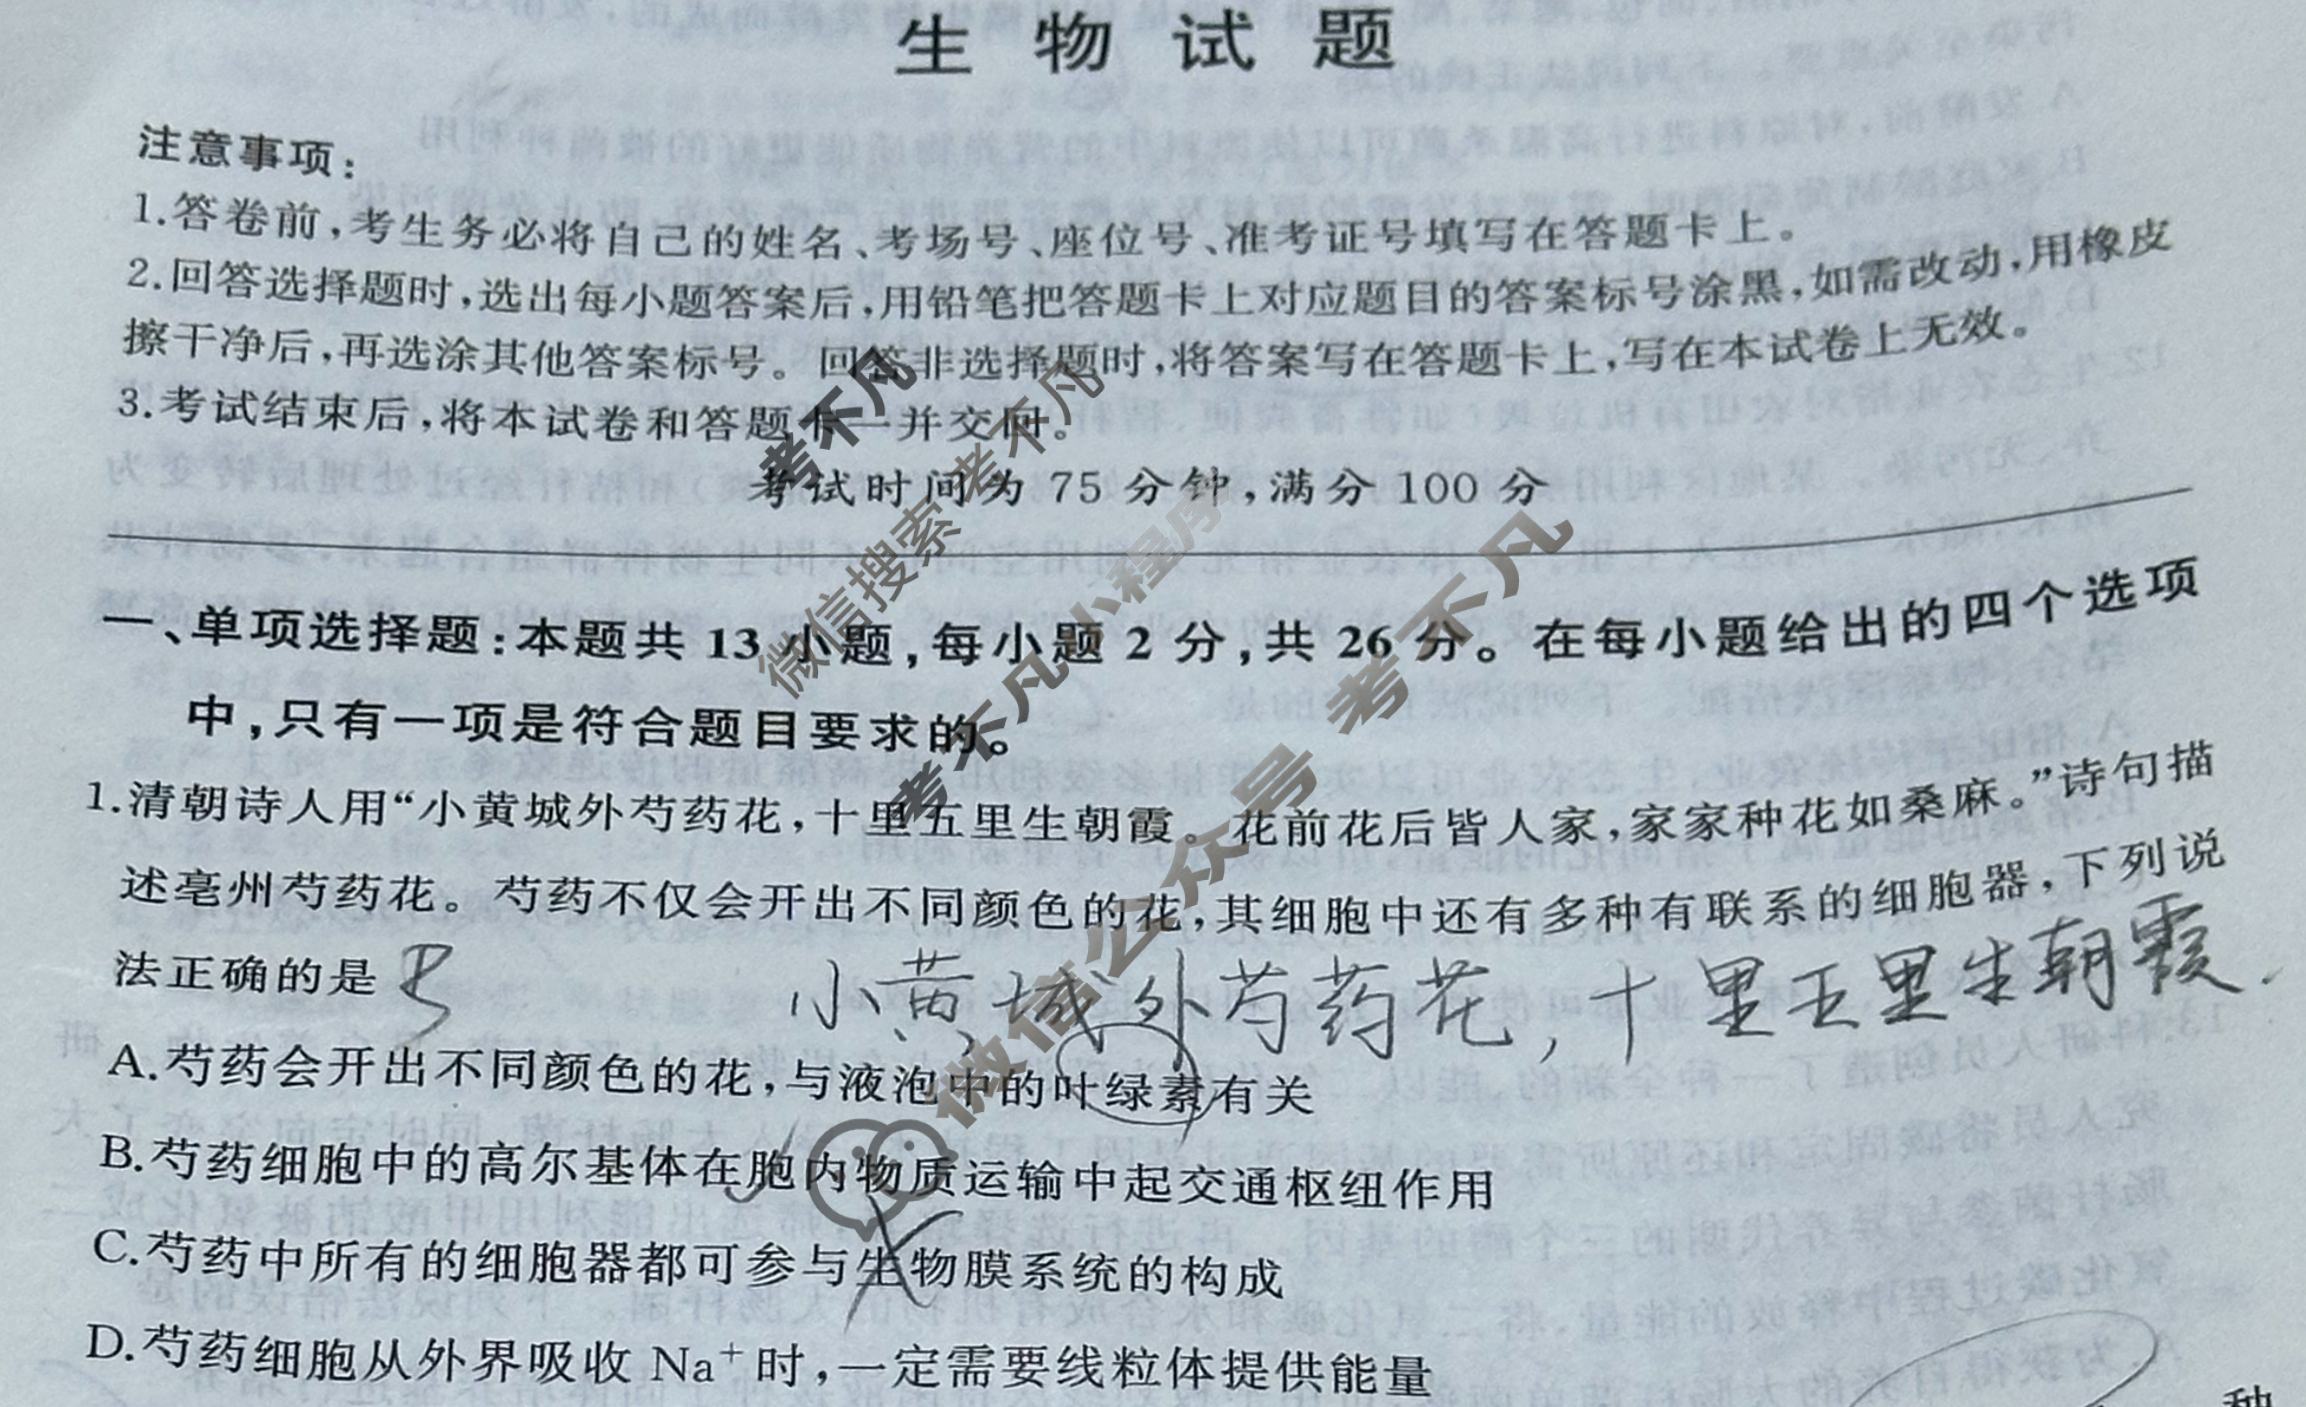 生物试题
注意事项：
1.答卷前，考生务必将自己的姓名、考场号、座位号、准考证号填写在答题卡上。
2.回答选择题时，选出每小题答案后，用铅笔把答题卡上对应题目的答案标号涂黑，如需改动，用橡皮
擦干净后，再选涂其他答案标号。回答非选择题时，将答案写在答题卡上，写在本试卷上无效。
3.考试结束后，将本试卷和答题卡一并交回。
考试时间为 75 分钟，满分 100 分
一、单项选择题：本题共 13 小题，每小题 2 分，共 26 分。在每小题给出的四个选项
中，只有一项是符合题目要求的。
1.清朝诗人用“小黄城外芍药花，十里五里生朝霞。花前花后皆人家，家家种花如桑麻。”诗句描
述亳州芍药花。芍药不仅会开出不同颜色的花，其细胞中还有多种有联系的细胞器，下列说
法正确的是
小黄城外芍药花，十里五里生朝霞.
A.芍药会开出不同颜色的花，与液泡中的叶绿素有关
B.芍药细胞中的高尔基体在胞内物质运输中起交通枢纽作用
C.芍药中所有的细胞器都可参与生物膜系统的构成
D.芍药细胞从外界吸收 Na⁺ 时，一定需要线粒体提供能量
种
考不凡
微信搜索 考不凡
考不凡小程序
微信公众号 考不凡